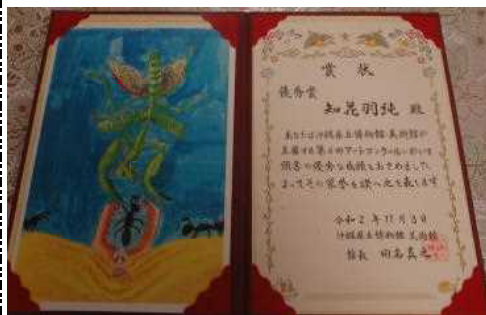 賞状
優秀賞
知花羽純 殿
あなたは沖縄県立博物館・美術館が
主催する第4回アートコンクールにおいて
頭書の優秀な成績をおさめました
よってその栄誉を讃へ之を表します
令和2年11月3日
沖縄県立博物館・美術館
館長 田名真之